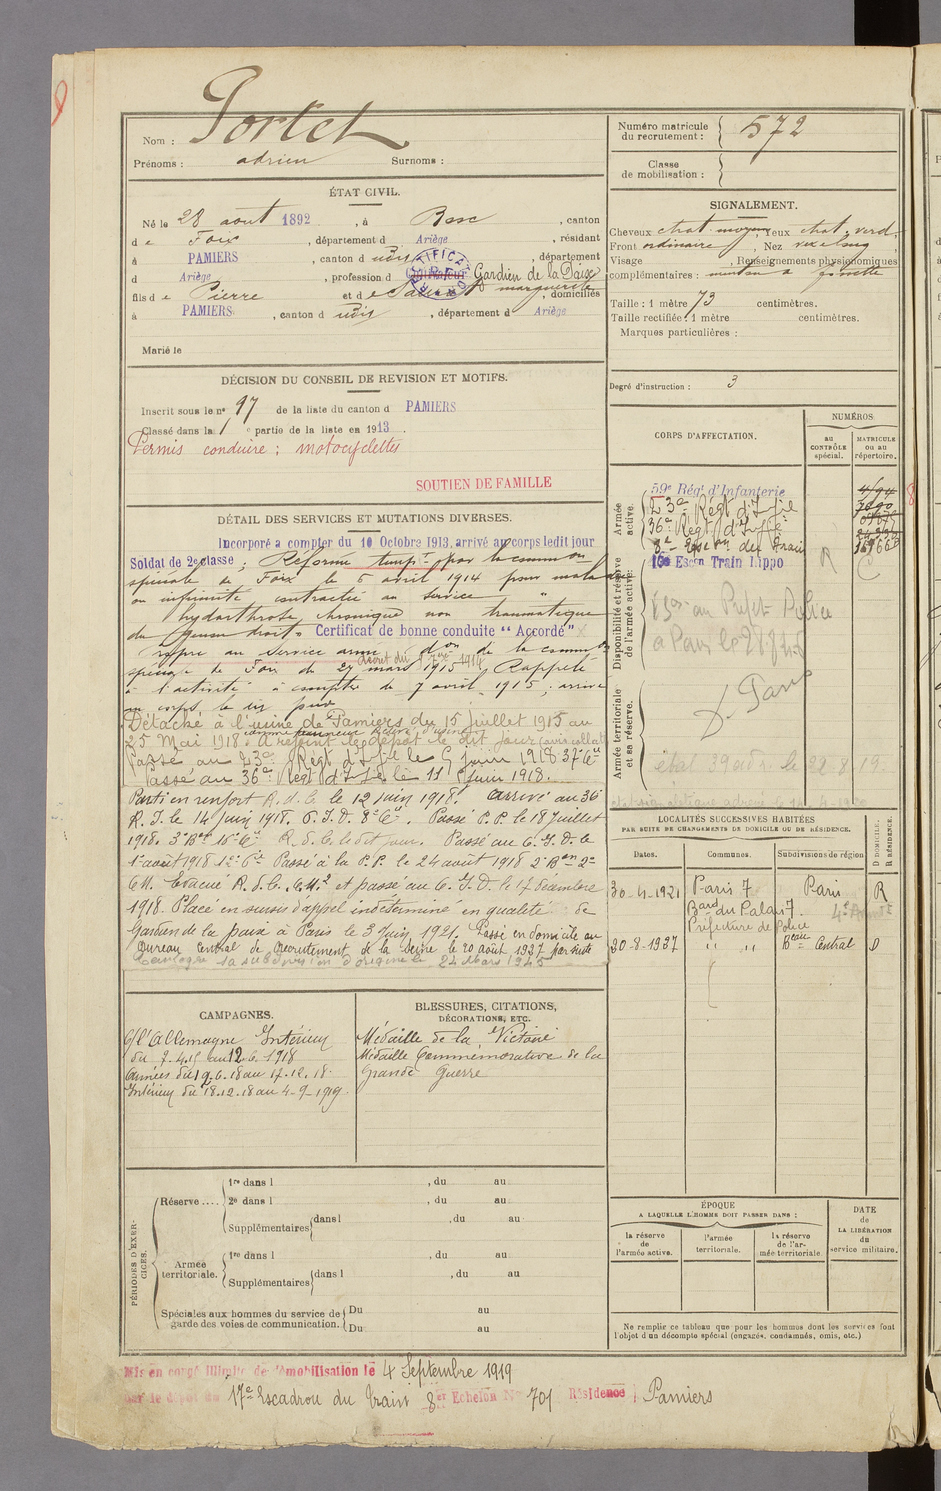 Nom : Portet
Prénoms : adrien Surnoms :
ÉTAT CIVIL.
Né le 28 aout 1892, à Bosc, canton
de Foix, département d Ariège, résidant
à PAMIERS, canton d udit, département
d Ariège, profession d Gardien de la Paix
fils de Pierre et de marguerite, domiciliés
à PAMIERS, canton d udit, département d Ariège
Marié le
DÉCISION DU CONSEIL DE REVISION ET MOTIFS.
Inscrit sous le no 97 de la liste du canton d PAMIERS
Classé dans la 1 e partie de la liste en 1913.
Permis conduire ; motocyclettes
SOUTIEN DE FAMILLE
DÉTAIL DES SERVICES ET MUTATIONS DIVERSES.
Incorporé a compter du 10 Octobre 1913, arrivé au corps ledit jour
Soldat de 2e classe ; Réformé tempre par la common
spéciale de Foix le 5 avril 1914 pour maladie
ou infirmité contractée au service "
hydarthrose chronique non traumatique
du genou droit". Certificat de bonne conduite "Accordé"
service armé don de la common
spéciale de Foix du 27 mars 1915. Rappelé
à l'activité à compter du 7 avril 1915 ; arrivé
au corps le dit jour
Détaché à l'usine de Pamiers du 15 juillet 1915 au
25 Mai 1918. A rejoint le dépôt le dit jour
Passé au 23e Régt d'Inf.ie le 9 Juin 1918 37e Cie
Passé au 36e Régt d'Inf.ie le 11 Juin 1918.
Parti en renfort R.d.C. le 12 juin 1918. Arrivé au 36
R.I. le 14 juin 1918. C.I.D. 8e Cie. Passé P.P. le 18 Juillet
1918. 3e Bon 10e Cie R.d.C. le dit jour. Passé au C.I.D. le
1er août 1918 12e Cie Passé à la P.P. le 24 août 1918 2e Bon 2e
C.M. Evacué R.d.C. C.M.2 et passé au C.I.D. le 17 décembre
1918. Placé en sursis d'appel indéterminé en qualité de
Gardien de la paix à Paris le 3 Juin 1921. Passé en domicile au
Bureau Central de Recrutement de la Seine le 20 août 1937 par suite
la subdivision d'origine le 24 Mars 1945
CAMPAGNES.
C/ l'Allemagne Intérieur
du 7.4.15 au 12.6.1918
Armées du 12.6.18 au 17.12.18.
Intérieur du 18.12.18 au 4-9-1919.
BLESSURES, CITATIONS,
DÉCORATIONS, ETC.
Médaille de la Victoire
Médaille Commémorative de la
Grande Guerre
PÉRIODES D'EXERCICES.
Réserve.... 1re dans l , du au
2e dans l , du au
Supplémentaires dans l , du au
Armée territoriale. 1re dans l , du au
2e dans l , du au
Supplémentaires dans l , du au
Spéciales aux hommes du service de garde des voies de communication. Du au
Du au
Mis en congé illimité de démobilisation le 4 Septembre 1919
par le dépôt du 17e Escadron du Train 8e Echelon No 701 Résidence Pamiers
Numéro matricule
du recrutement : 572
Classe
de mobilisation :
SIGNALEMENT.
Cheveux chat moyen, Yeux chat. verd.
Front ordinaire, Nez
Visage , Renseignements physionomiques
complémentaires : menton à fossette
Taille : 1 mètre 73 centimètres.
Taille rectifiée : 1 mètre centimètres.
Marques particulières :
Degré d'instruction : 3
CORPS D'AFFECTATION.
NUMÉROS
AU CONTRÔLE spécial.
MATRICULE ou au répertoire.
Armée active.
59e Régt d'Infanterie
23e Régt d'Infie
36e Régt d'Infie
Disponibilité et réserve de l'armée active.
Escon Train Hippo
au Préfet Police
à Paris le
Armée territoriale et sa réserve.
Paris
LOCALITÉS SUCCESSIVES HABITÉES
PAR SUITE DE CHANGEMENTS DE DOMICILE OU DE RÉSIDENCE.
D DOMICILE, R RÉSIDENCE.
Dates. Communes. Subdivisions de région
30-4-1921 Paris 7 Paris R
Bard du Palais 7.
Préfecture de Police
20-8-1937 " " Beau Central D
ÉPOQUE
A LAQUELLE L'HOMME DOIT PASSER DANS :
la réserve de l'armée active.
l'armée territoriale.
la réserve de l'armée territoriale.
DATE de LA LIBÉRATION du service militaire.
Ne remplir ce tableau que pour les hommes dont les services font
l'objet d'un décompte spécial (engagés, condamnés, omis, etc.)